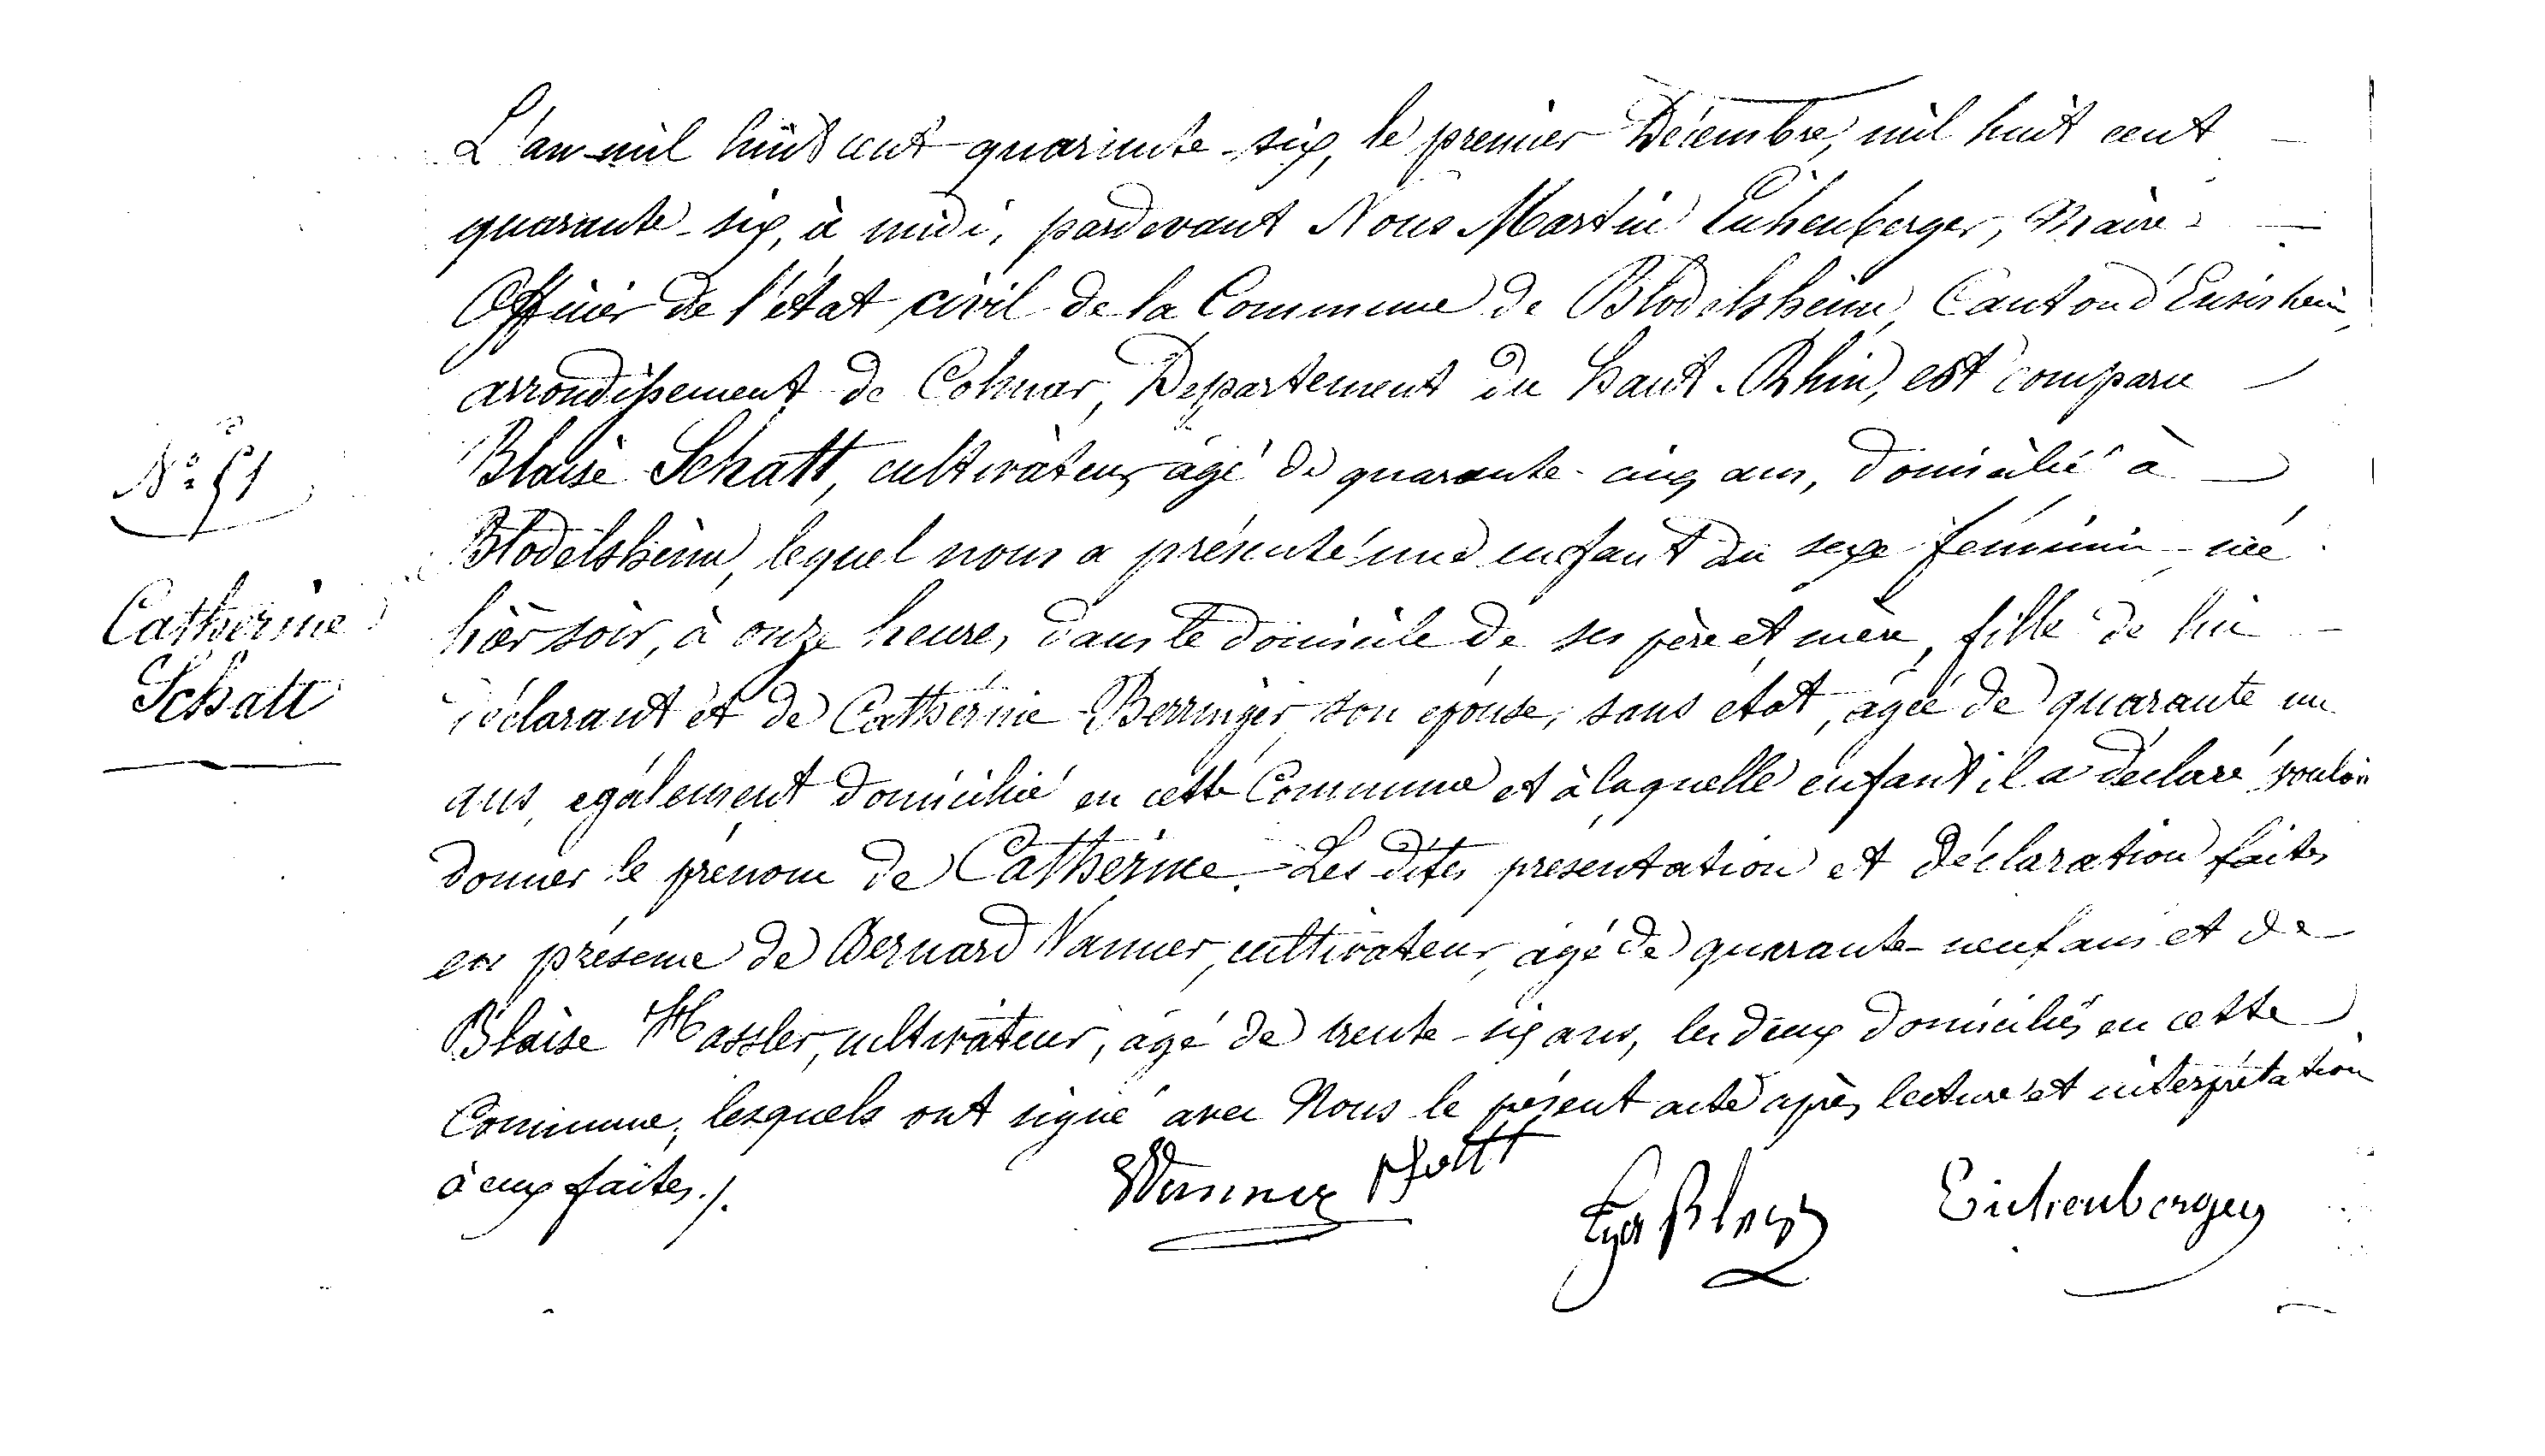 L'an mil huit cent quarante-six, le premier Décembre, mil huit cent
quarante-six, à midi, pardevant Nous Martin Eichenberger, Maire
Officier de l'état civil de la Commune de Blodelsheim, Canton d'Ensisheim,
arrondissement de Colmar, Departement du Haut-Rhin, est comparu
Blaise Schatt, cultivateur, agé de quarante-cinq ans, domicilié à
Blodelsheim, lequel nous a présenté une enfant du sexe féminin, née
hier soir, à onze heures, dans le domicile de ses père et mère, fille de lui
déclarant et de Catherine Berringer son epouse, sans état, agée de quarante un
ans, également domicilié en cette Commune et à laquelle enfant il a déclaré vouloir
donner le prénom de Catherine. Les dites présentation et déclaration faites
en présence de Bernard Vanner, cultivateur, agé de quarante-neuf ans et de
Blaise Hassler, cultivateur, agé de trente-six ans, les deux domiciliés en cette
Commune, lesquels ont signé avec Nous le présent acte après lecture et interprétation
à eux faites./.
Nº 51
Catherine
Schatt
Wanner Schatt
Eichenberger